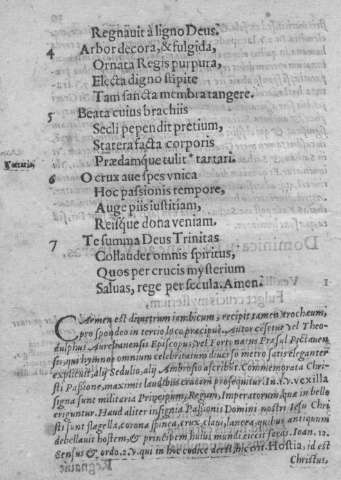 Regnauit à ligno Deus.
4 Arbor decora, & fulgida,
Ornata Regis purpura,
Electa digno stipite
Tam sancta membra tangere.
5 Beata cuius brachiis
Secli pependit pretium,
Statera facta corporis
Prædamque tulit * tartari.
6 O crux aue spes vnica
Hoc passionis tempore,
Auge piis iustitiam,
Reisque dona veniam.
7 Te summa Deus Trinitas
Collaudet omnis spiritus,
Quos per crucis mysterium
Saluas, rege per secula. Amen.
Carmen est dimetrum iambicum, recipit tamen trocheum,
pro spondeo in tertio loco præcipue. Autor cēsetur vel Theo-
dulphus Aurelianensis Episcopus, vel Fortunatus
qui hymnor. omnium celebritatum diuerso metro satis eleganter
explicuit, alij Sedulio, alij Ambrosio ascribūt. Commemorata Chri-
sti Passione, maximis laudibus crucem prosequitur. In .1. v. vexilla
signa sunt militaria Principum, Regum, Imperatorum, quæ in bello
eriguntur. Haud aliter insignia Passionis Domini nostri Iesu Chri
sti sunt flagella, corona spinea, crux, claui, lancea, quibus antiquum
debellauit hostem, & principem huius mundi eiecit foras. Ioan. 12.
Sensus & ordo. 2. v. qui in hoc codice Hostia, id est
Christus,